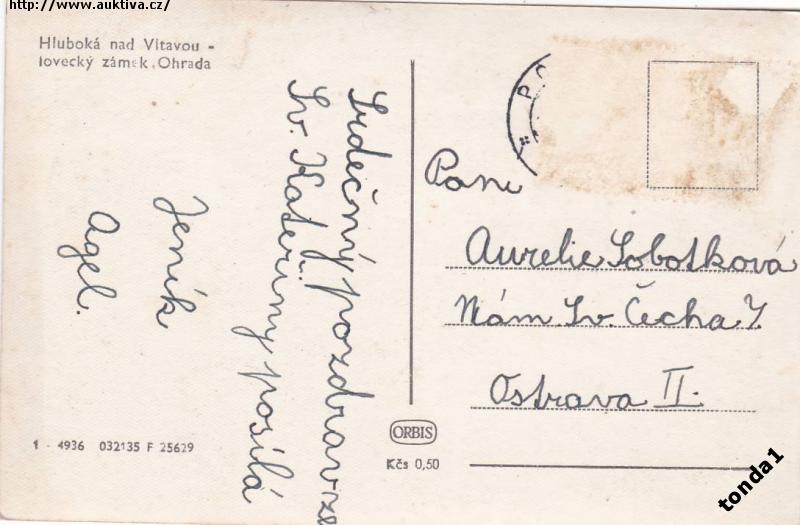 http://www.auktiva.cz/
Hluboká nad Vltavou -
lovecký zámek Ohrada
Srdečný pozdrav ze
Sv. Kateřiny posílá
Jeník
Agel.
Paní
Aurelie Sobotková
Nám. Sv. Čecha 7.
Ostrava II.
1 - 4936 032135 F 25629
ORBIS
Kčs 0,50
tonda1